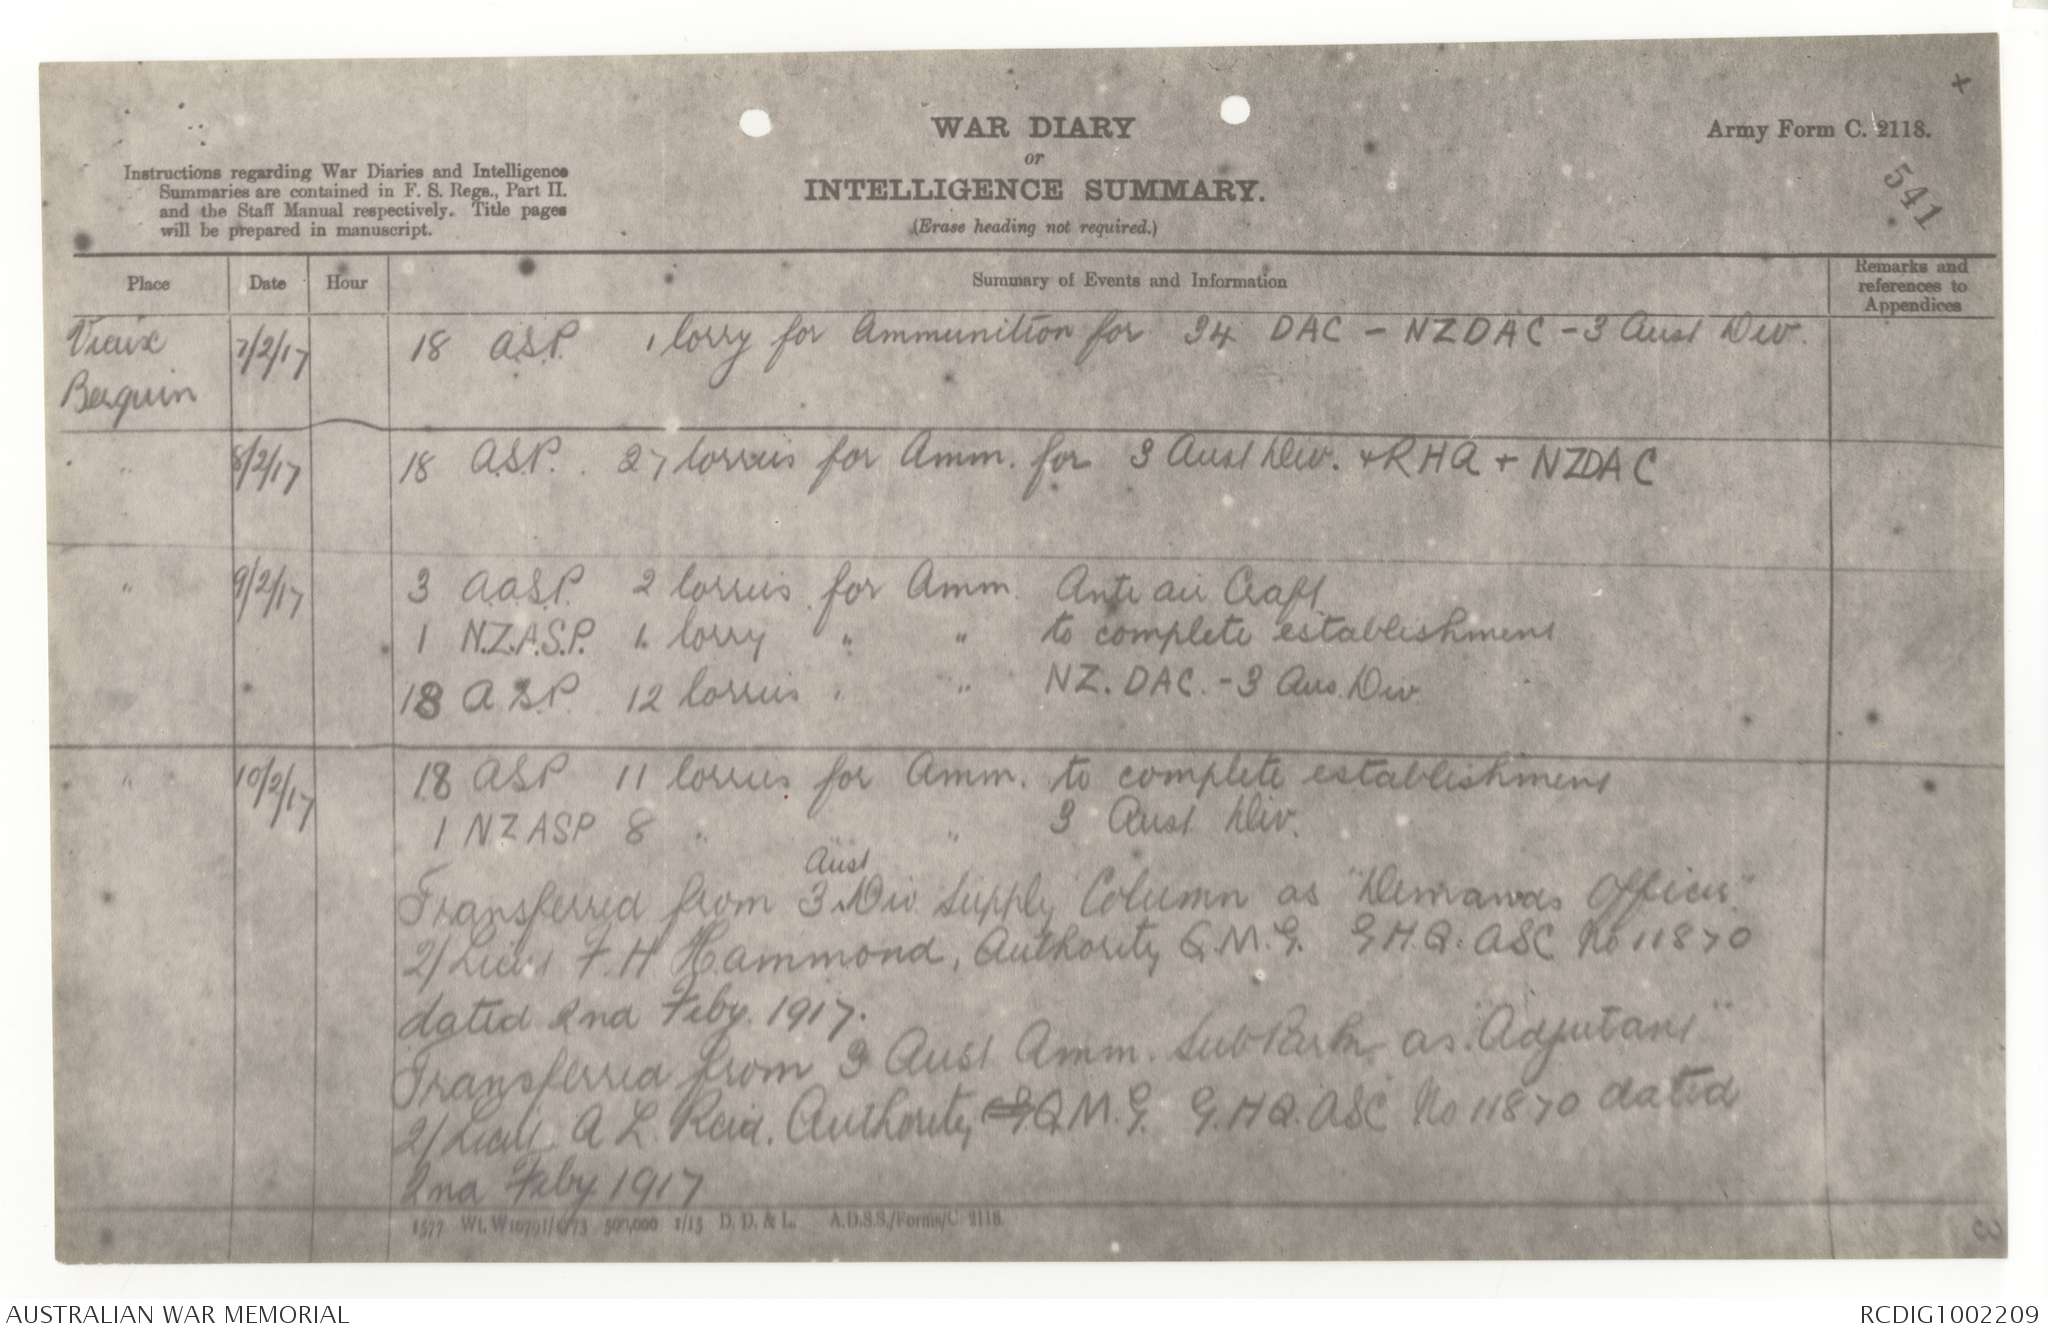 +
WAR DIARY
or
INTELLIGENCE SUMMARY.
(Erase heading not required.)
Army Form C. 2118.
541
Instructions regarding War Diaries and Intelligence
Summaries are contained in F. S. Regs., Part II.
and the Staff Manual respectively. Title pages
will be prepared in manuscript.
Place Date Hour Summary of Events and Information Remarks and references to Appendices
Vieux Berquin 7/2/17 18 A.S.P. 1 lorry for Ammunition for 34 DAC - NZDAC - 3 Aust Div.
" 8/2/17 18 A.S.P. 27 lorries for Amm. for 3 Aust Div. + RHA + NZDAC
" 9/2/17 3 A.A.S.P. 2 lorries for Amm. Anti air Craft
1 N.Z.A.S.P. 1 lorry " " to complete establishment
18 A.S.P. 12 lorries " " NZ. DAC. - 3 Aus. Div.
" 10/2/17 18 ASP 11 lorries for Amm. to complete establishment
1 NZASP 8 " " 3 Aust Div.
Aust
Transferred from 3 Div Supply Column as "Demands Officer"
2/Lieut F. H Hammond, Authority Q.M.G. G.H.Q. ASC No 11870
dated 2nd Feby. 1917.
Transferred from 3 Aust Amm. Sub Park as "Adjutant"
2/Lieut A L. Reid. Authority Q.M.G. G.H.Q. ASC No 11870 dated
2nd Feby 1917
1577 Wt. W10791/1773 500,000 1/15 D. D. & L. A.D.S.S./Forms/C. 2118.
AUSTRALIAN WAR MEMORIAL
RCDIG1002209